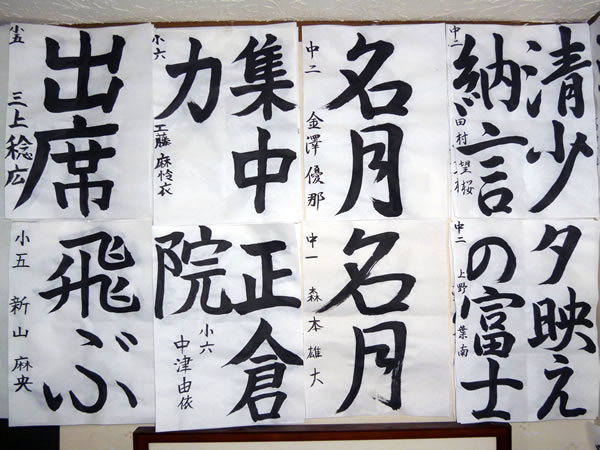 清少
納言
中二
名月
中二 金澤優那
集中
力
小六 工藤麻怜衣
出席
小五 三上稔広
夕映え
の富士
中二 上野
名月
中一 森本雄大
正倉
院
小六 中津由依
飛ぶ
小五 新山麻央